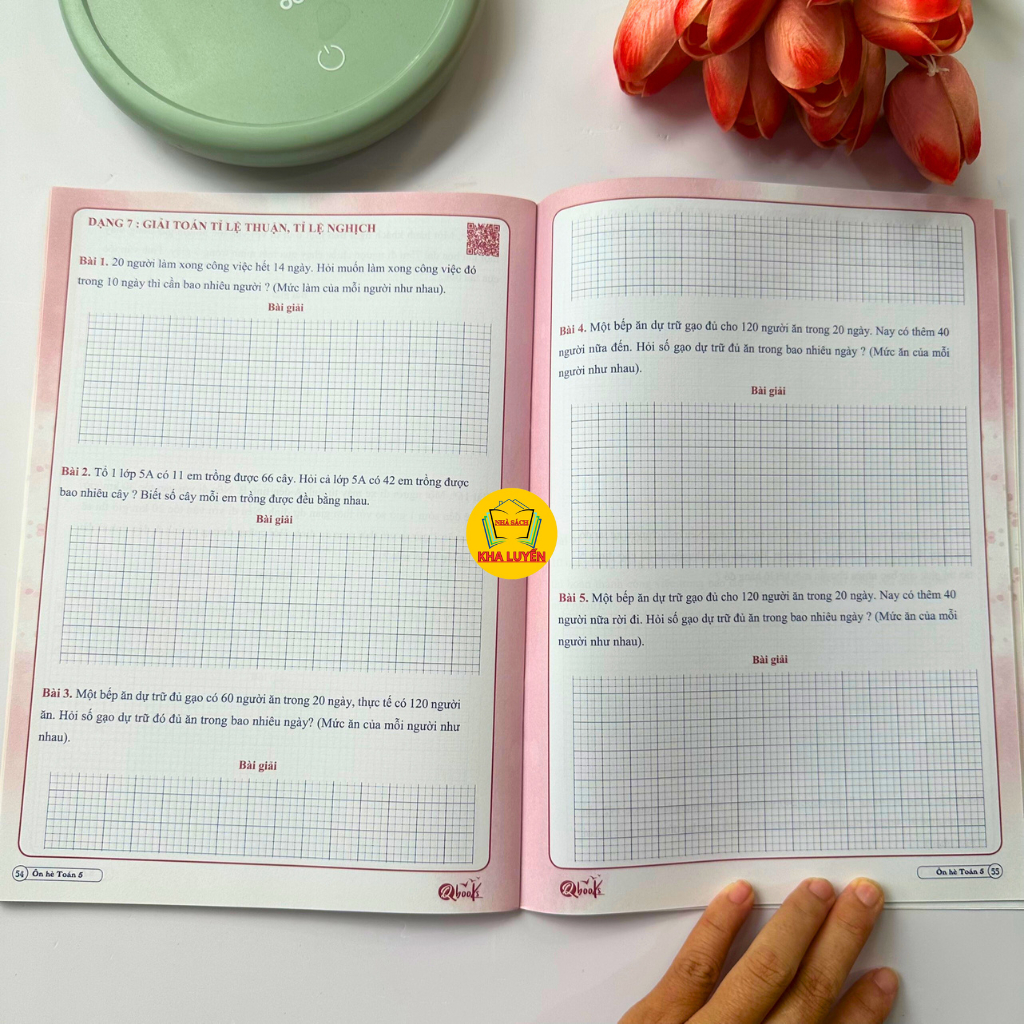 DẠNG 7 : GIẢI TOÁN TỈ LỆ THUẬN, TỈ LỆ NGHỊCH
Bài 1. 20 người làm xong công việc hết 14 ngày. Hỏi muốn làm xong công việc đó
trong 10 ngày thì cần bao nhiêu người ? (Mức làm của mỗi người như nhau).
Bài giải
Bài 2. Tổ 1 lớp 5A có 11 em trồng được 66 cây. Hỏi cả lớp 5A có 42 em trồng được
bao nhiêu cây ? Biết số cây mỗi em trồng được đều bằng nhau.
Bài giải
Bài 3. Một bếp ăn dự trữ đủ gạo có 60 người ăn trong 20 ngày, thực tế có 120 người
ăn. Hỏi số gạo dự trữ đó đủ ăn trong bao nhiêu ngày? (Mức ăn của mỗi người như
nhau).
Bài giải
54 Ôn hè Toán 5
Qbook
Bài 4. Một bếp ăn dự trữ gạo đủ cho 120 người ăn trong 20 ngày. Nay có thêm 40
người nữa đến. Hỏi số gạo dự trữ đủ ăn trong bao nhiêu ngày ? (Mức ăn của mỗi
người như nhau).
Bài giải
Bài 5. Một bếp ăn dự trữ gạo đủ cho 120 người ăn trong 20 ngày. Nay có thêm 40
người nữa rời đi. Hỏi số gạo dự trữ đủ ăn trong bao nhiêu ngày ? (Mức ăn của mỗi
người như nhau).
Bài giải
Qbook
Ôn hè Toán 5 55
NHÀ SÁCH
KHA LUYẾN